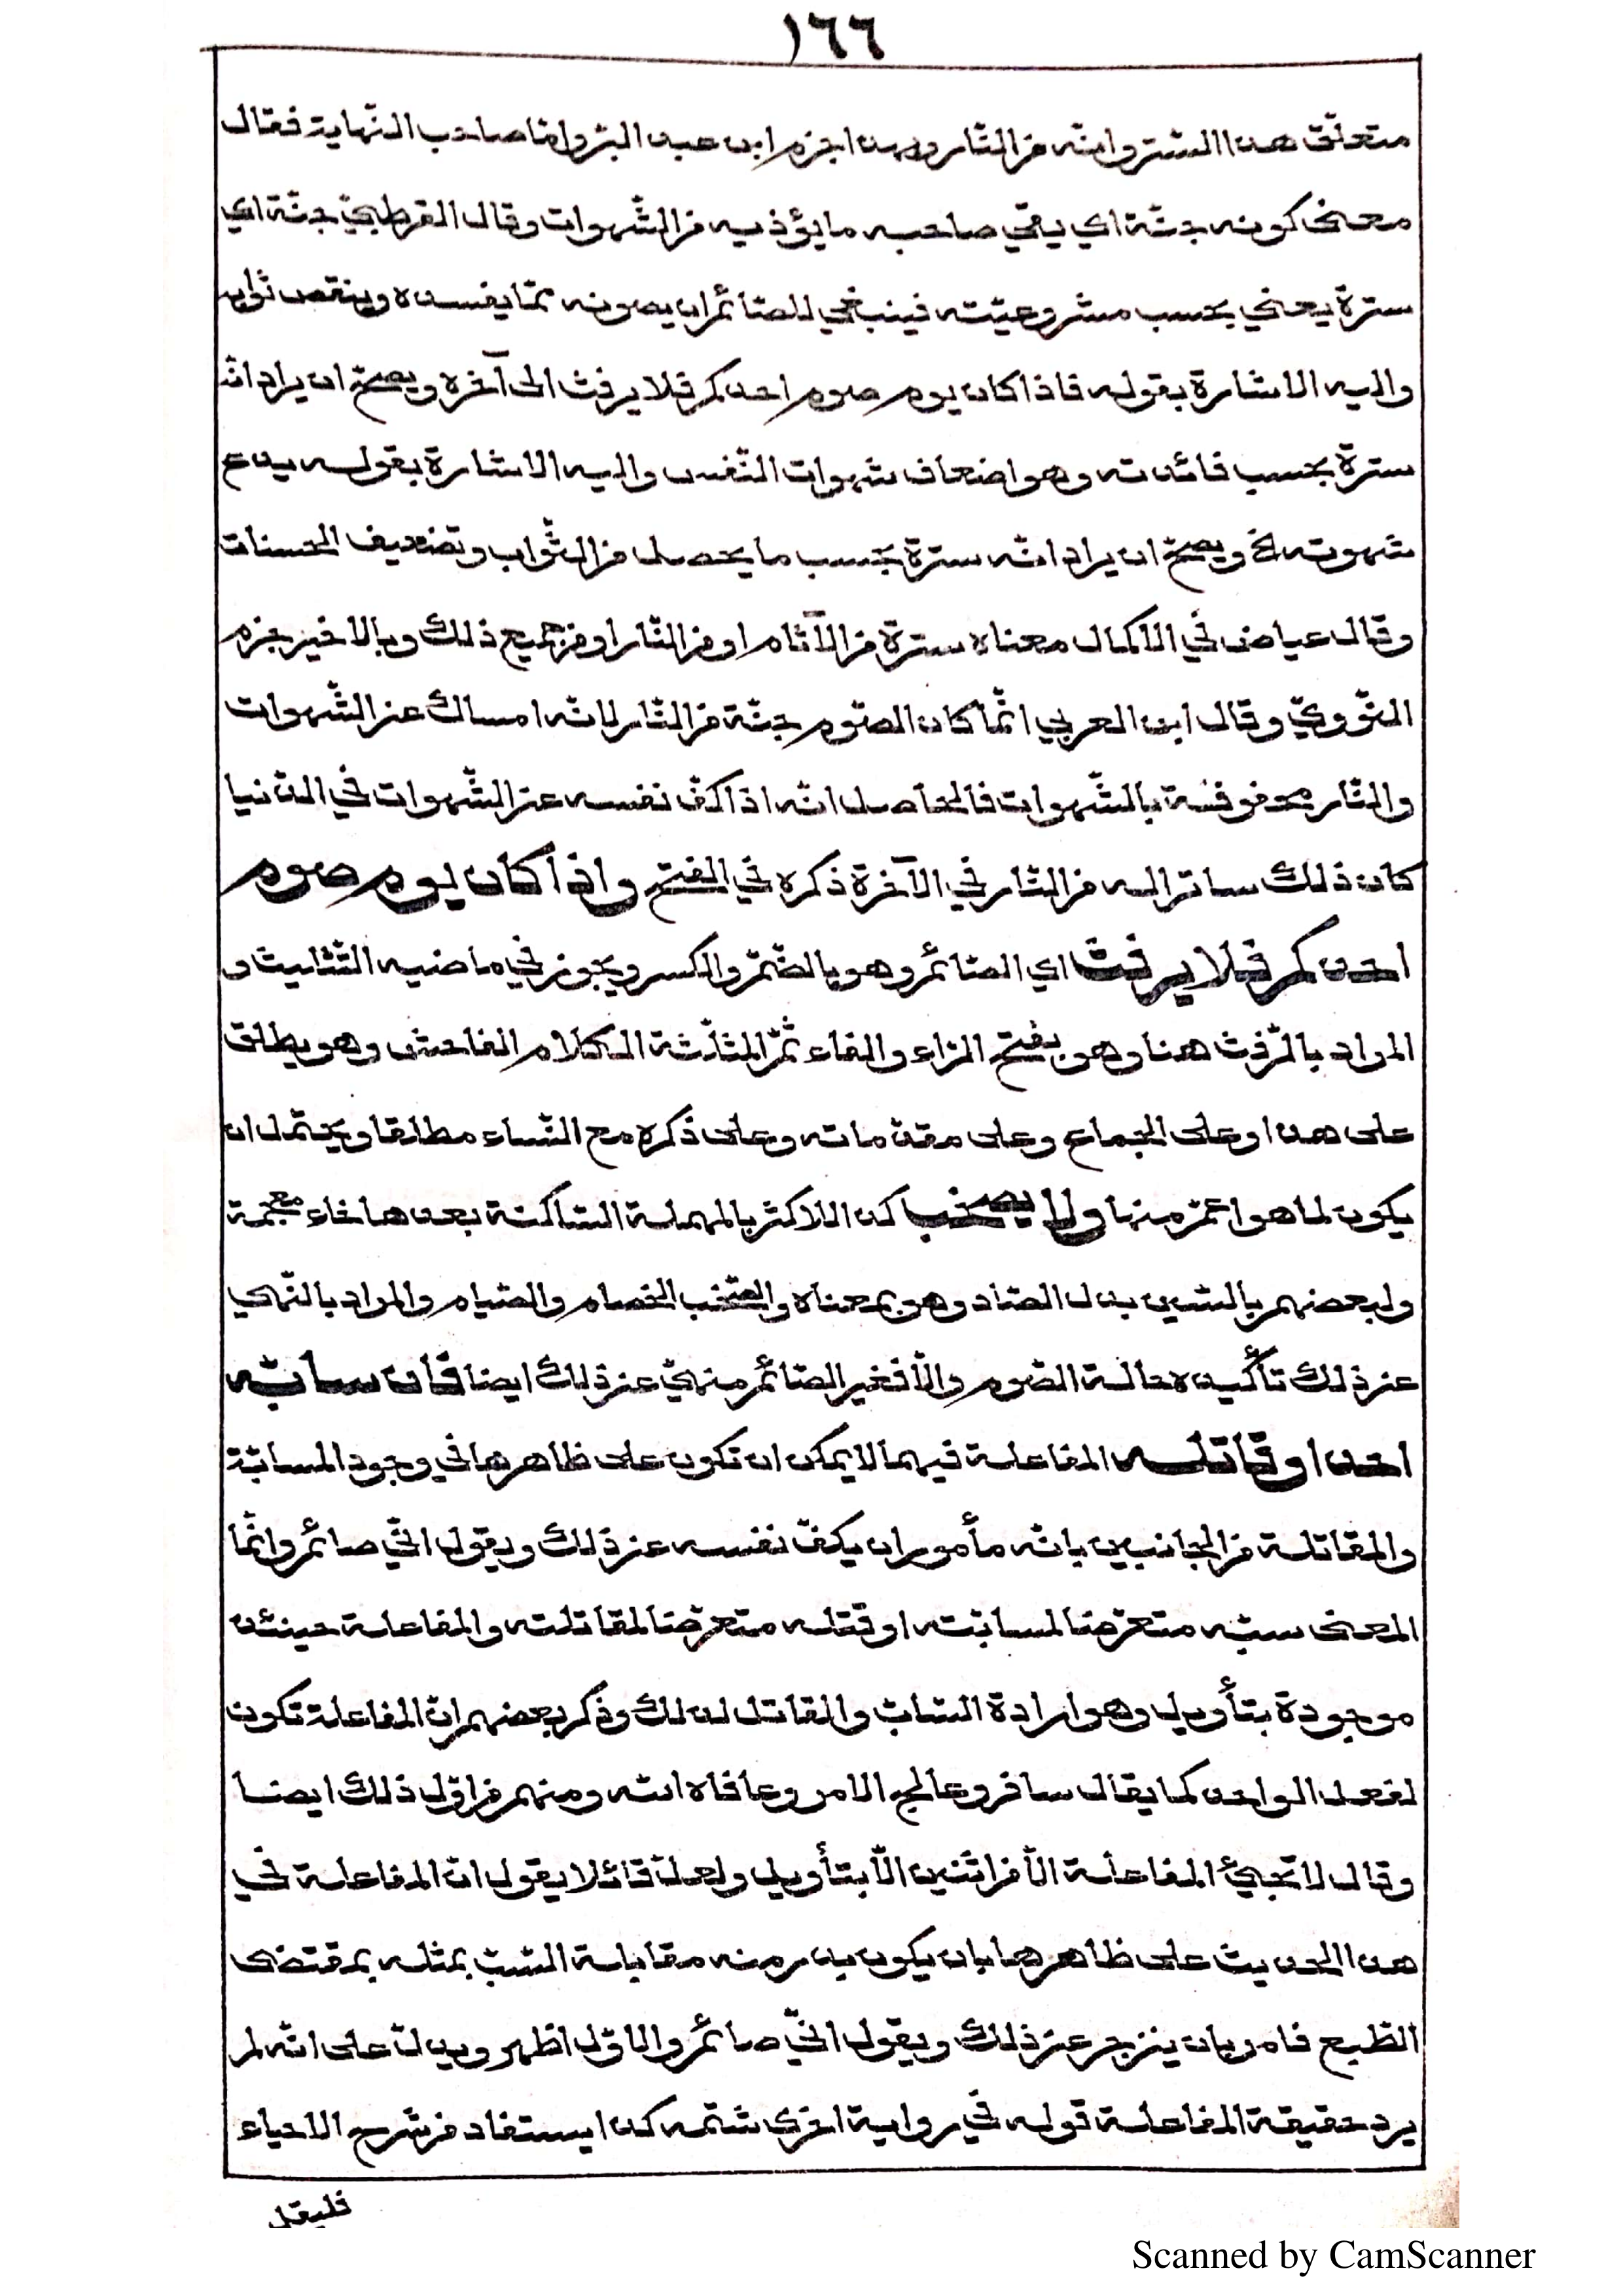 ١٦٦
متعلّق هذا الستر وانّه من النّار وبهذا جزم ابن عبد البرّ وامّا صاحب النّهاية فقال
معنى كونه جنّة اي يقي صاحبه ما يؤذيه من الشّهوات وقال القرطبيّ جنّة اي
سترة يعني بحسب مشروعيّته فينبغي للصّائم ان يصونه ممّا يفسده وينقص ثوابه
واليه الاشارة بقوله فاذا كان يوم صوم احدكم فلا يرفث الى آخره ويصحّ ان يراد انّه
سترة بحسب فائدته وهو اضعاف شهوات النّفس واليه الاشارة بقوله يدع
شهوته الخ ويصحّ ان يراد انّه سترة بحسب ما يحصل من الثّواب وتضعيف الحسنات
وقال عياض في الاكمال معناه سترة من الآثام او من النّار او من جميع ذلك وبالاخير جزم
النّوويّ وقال ابن العربي انّما كان الصّوم جنّة من النّار لانّه امساك عن الشّهوات
والنّار محفوفة بالشّهوات فالحاصل انّه اذا كفّ نفسه عن الشّهوات في الدّنيا
كان ذلك ساترا له من النّار في الآخرة ذكره في الفتح واذا كان يوم صوم
احدكم فلا يرفث اي الصّائم وهو بالضّمّ والكسر ويجوز في ماضيه التّثليث و
المراد بالرّفث هنا وهو بفتح الرّاء والفاء ثمّ المثلّثة الكلام الفاحش وهو يطلق
على هذا وعلى الجماع وعلى مقدّماته وعلى ذكره مع النّساء مطلقا ويحتمل ان
يكون لما هو اعمّ منها ولا يصخب كذا للاكثر بالمهملة السّاكنة بعدها خاء معجمة
ولبعضهم بالسّين بدل الصّاد وهو بمعناه والصّخب الخصام والصّياح والمراد بالنّهي
عن ذلك تأكيده حالة الصّوم والّا فغير الصّائم منهيّ عن ذلك ايضا فان سابّه
احد او قاتله المفاعلة فيهما لا يمكن ان تكون على ظاهرها في وجود المسابّة
والمقاتلة من الجانبين بانّه مأمور ان يكفّ نفسه عن ذلك ويقول انّي صائم وانّما
المعنى سبّه متعرّضا لمسابّته او قتله متعرّضا لمقاتلته والمفاعلة حينئذ
موجودة بتأويل وهو ارادة السّابّ والقاتل لذلك وذكر بعضهم انّ المفاعلة تكون
لفعل الواحد كما يقال سافر وعالج الامر وعافاه الله ومنهم من اوّل ذلك ايضا
وقال لا تجيئ المفاعلة الّا من اثنين الّا بتأويل ولعلّ قائلا يقول انّ المفاعلة في
هذا الحديث على ظاهرها بان يكون بدر منه مقابلة السّبّ بمثله بمقتضى
الطّبع فامر بان ينزجر عن ذلك ويقول انّي صائم والاوّل اظهر ويدلّ على انّه لم
يرد حقيقة المفاعلة قوله في رواية اخرى شتمه كذا يستفاد من شرح الاحياء
فليقل
Scanned by CamScanner